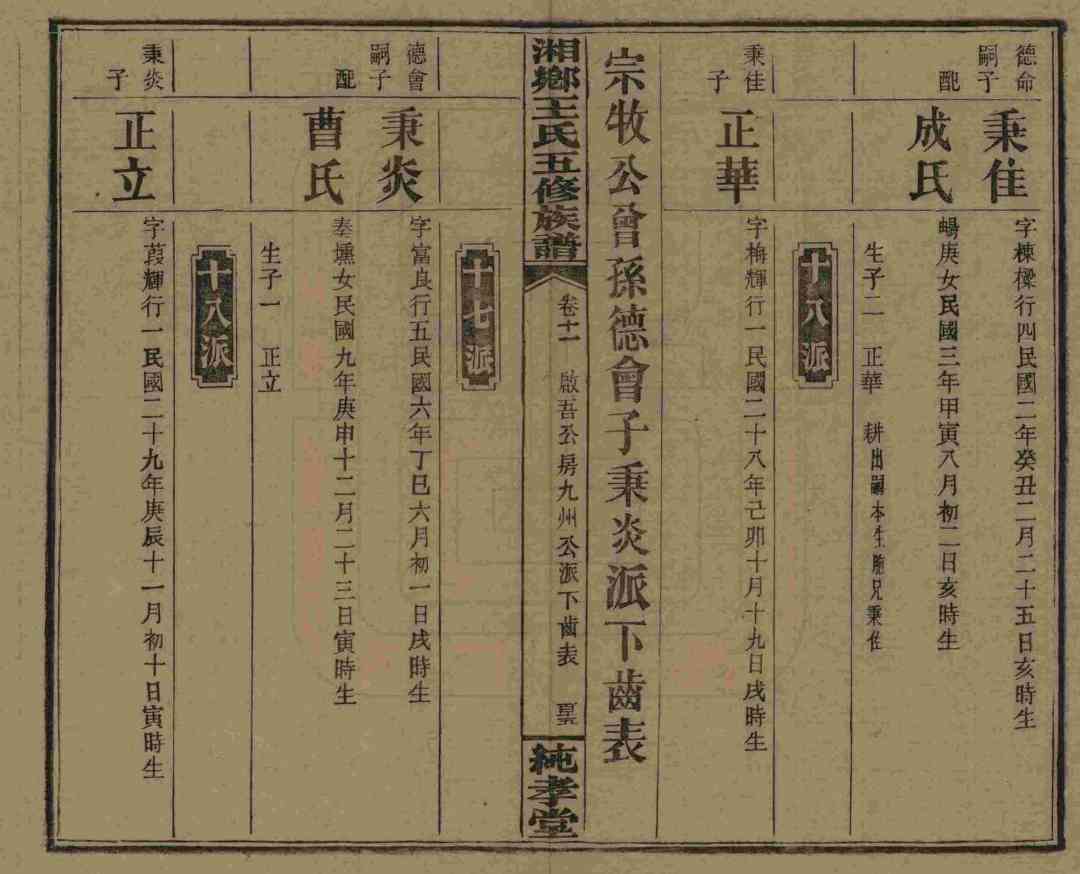 德命嗣子
秉佳
字棟樑行四民國二年癸丑二月二十五日亥時生
配
成氏
暘庚女民國三年甲寅八月初二日亥時生
生子二 正華 耕出嗣本生胞兄秉
十八派
秉佳子
正華
字梅輝行一民國二十八年己卯十月十九日戌時生
宗牧公曾孫德會子秉炎派下齒表
湘鄉王氏五修族譜
卷十一 啟吾公房九州公派下齒表
純孝堂
十七派
德會嗣子
秉炎
字富良行五民國六年丁巳六月初一日戌時生
配
曹氏
奉壎女民國九年庚申十二月二十三日寅時生
生子一 正立
十八派
秉炎子
正立
字葭輝行一民國二十九年庚辰十一月初十日寅時生